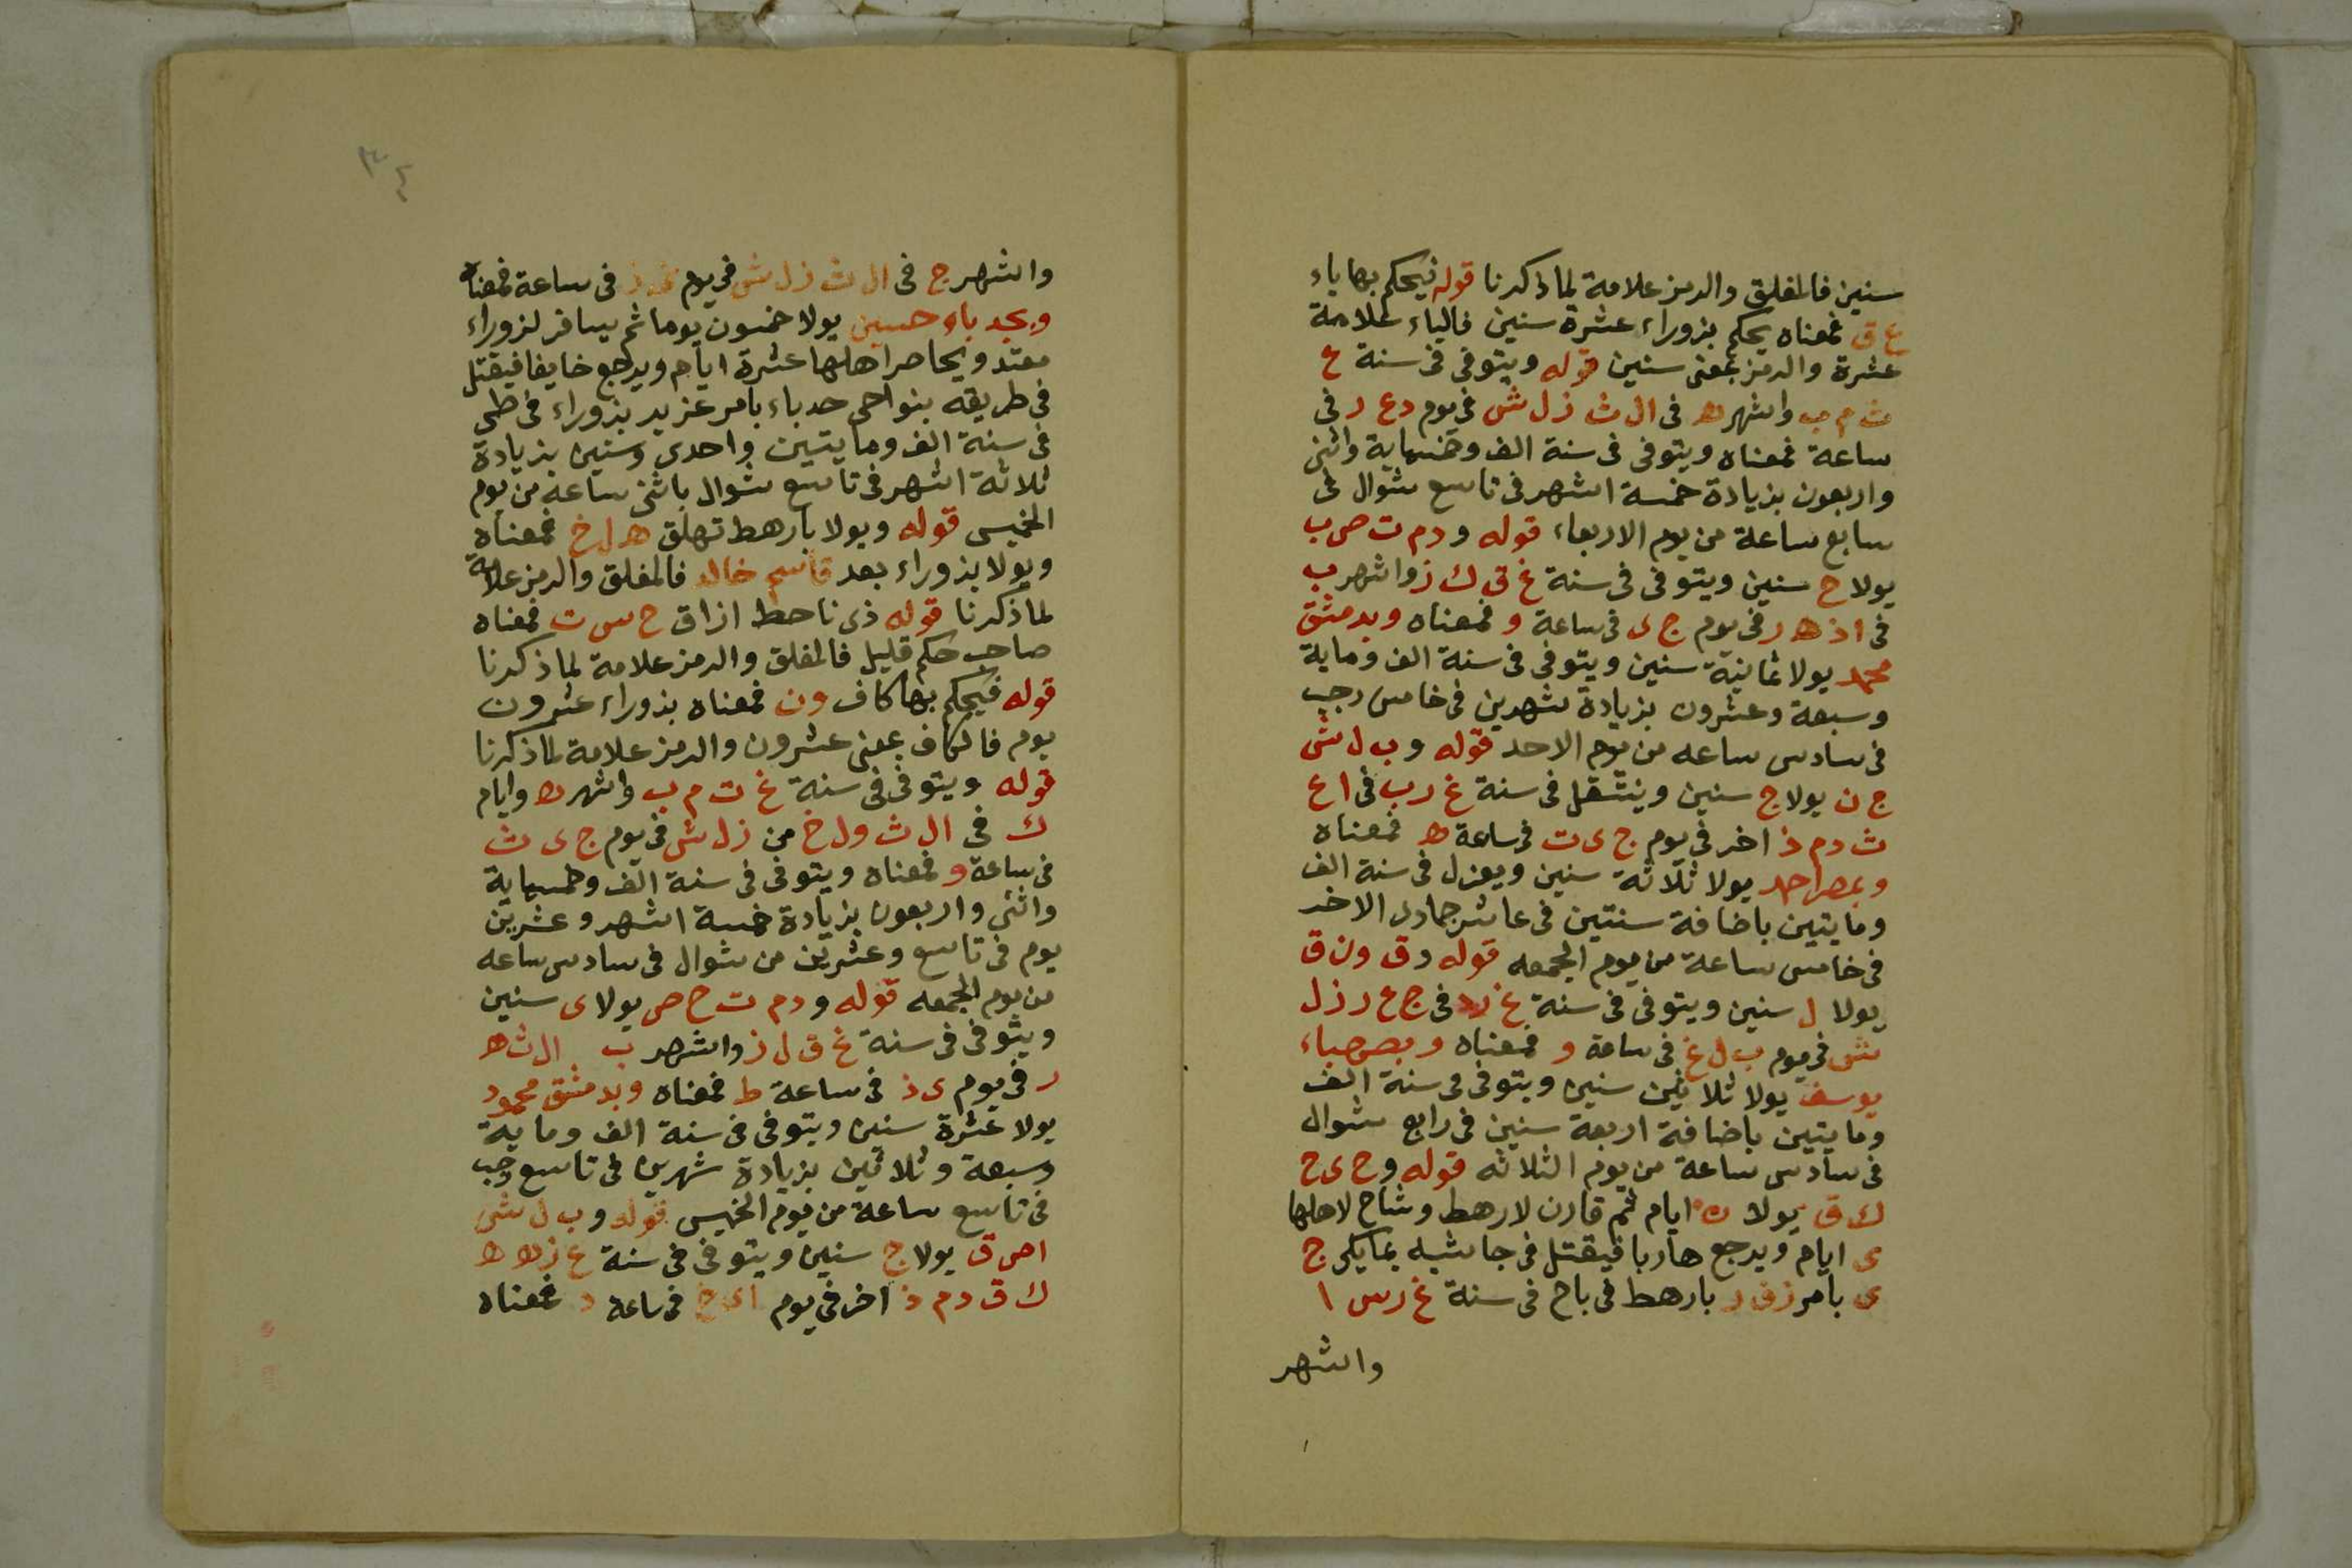 سنين فالمغلق والرمز علامة لما ذكرنا قوله فيحكم بها ياء
ع ق فمعناه يحكم بزوراء عشرة سنين فالياء علامة
عشرة والرمز بمعنى سنين قوله ويتوفى فى سنة غ
ث م ب واشهر ه فى ال ث ز ل ش فى يوم د ع ر فى
ساعة فمعناه ويتوفى فى سنة الف وخمسماية واثنى
واربعون بزيادة خمسة اشهر فى تاسع شوال فى
سابع ساعة من يوم الاربعاء قوله و د م ت ص ب
يولا ح سنين ويتوفى فى سنة غ ق ك ز واشهر ب
فى ا ذ ه ر فى يوم ج ى فى ساعة و فمعناه وبدمشق
محمد يولا ثمانية سنين ويتوفى فى سنة الف وماية
وسبعة وعشرون بزيادة شهرين فى خامس رجب
فى سادس ساعه من يوم الاحد قوله و ب ل ش
ج ن يولا ج سنين وينتقل فى سنة غ ر ب فى ا ع
ث د م ذ اخر فى يوم ج ى ت فى ساعة ه فمعناه
وبمصر احمد يولا ثلاثة سنين ويعزل فى سنة الف
ومايتين باضافة سنتين فى عاشر جمادى الاخر
فى خامس ساعة من يوم الجمعه قوله د ق و ن ق
يولا ل سنين ويتوفى فى سنة غ ر د فى ج ع ر ز ل
ش فى يوم ب ل غ فى ساعة و فمعناه وبصرحباء
يوسف يولا ثلاثين سنين ويتوفى فى سنة الف
ومايتين باضافة اربعة سنين فى رابع شوال
فى سادس ساعة من يوم الثلاثه قوله و ح ى ح
ك ق يولا ن ايام ثم قارن لارهط وشاح لاهلها
ى ايام ويرجع هاربا فيقتل فى جانبه بما يكى ج
ى بامر ز ق ر بارهط فى باح فى سنة غ ر س ا
واشهر
٣٤
واشهر ج فى ال ث ز ل ش فى يوم فى ساعة فمعناه
وبحدباء حسين يولا خمسون يوما ثم يسافر لزوراء
معتد ويحاصر اهلها عشرة ايام ويرجع خايفا فيقتل
فى طريقه بنواحى حدباء بامر عزير بزوراء فى طى
فى سنة الف ومايتين واحدى وستين بزيادة
ثلاثة اشهر فى تاسع شوال باثنى ساعة من يوم
الخميس قوله ويولا بارهط تهلق ه ل خ فمعناه
ويولا بزوراء بعد قاسم خالد فالمغلق والرمز علامة
لما ذكرنا قوله ذى ناحط ازاق ح س ت فمعناه
صاحب حكم قليل فالمغلق والرمز علامة لما ذكرنا
قوله فيحكم بها كاف ون فمعناه بزوراء عشرون
يوم فالكاف بمعنى عشرون والرمز علامة لما ذكرنا
قوله ويتوفى فى سنة غ ث م ب واشهر ه وايام
ك فى ال ث و ل خ من ز ل ش فى يوم ج ى ث
فى ساعة و فمعناه ويتوفى فى سنة الف وخمسماية
واثنى واربعون بزيادة خمسة اشهر وعشرين
يوم فى تاسع وعشرين من شوال فى سادس ساعه
من يوم الجمعه قوله و د م ت ح ص يولا ى سنين
ويتوفى فى سنة غ ق ل ز واشهر ب ال ث ه
ر فى يوم ى ذ فى ساعة ط فمعناه وبدمشق محمود
يولا عشرة سنين ويتوفى فى سنة الف وماية
وسبعة وثلاثين بزيادة شهرين فى تاسع رجب
فى تاسع ساعة من يوم الخميس قوله و ب ل ش
ا ص ق يولا ج سنين ويتوفى فى سنة
ك ق د م ذ اخر فى يوم فى ساعة د فمعناه